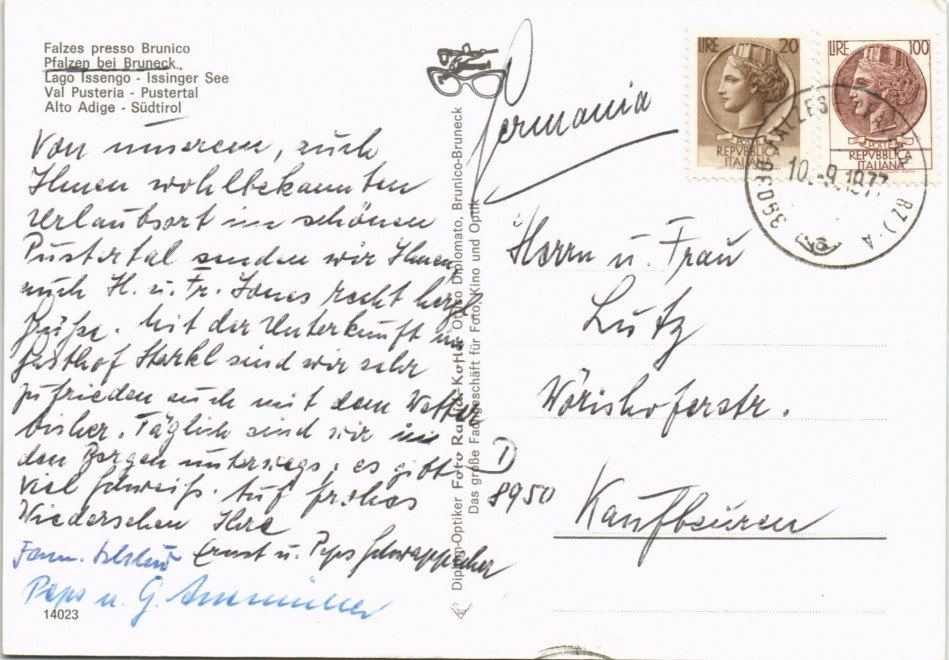 Falzes presso Brunico
Pfalzen bei Bruneck
Lago Issengo - Issinger See
Val Pusteria - Pustertal
Alto Adige - Südtirol
Von unserem, auch
Ihnen wohlbekannten
Urlaubsort im schönen
Pustertal senden wir Ihnen
auch H. u. Fr. Jones recht herzl.
Grüße. Mit der Unterkunft im
Gasthof Sterkl sind wir sehr
zufrieden auch mit dem Wetter
bisher. Täglich sind wir in
den Bergen unterwegs, es gibt
viel Schweiß. Auf frohes
Wiedersehen Ihre
Fam. Ernst u. Peps
Peps u. G.
14023
Diplom-Optiker Foto Otto Diplomato, Brunico-Bruneck
Das große Fachgeschäft für Foto, Kino und Optik
Germania
LIRE 20
POSTE
REPVBBLICA
ITALIANA
LIRE 100
POSTE
REPVBBLICA
ITALIANA
39030 FALZES - PFALZEN (BZ) A
10.-9.1977
Herrn u. Frau
Lutz
Wörishoferstr.
D
8950
Kaufbeuren